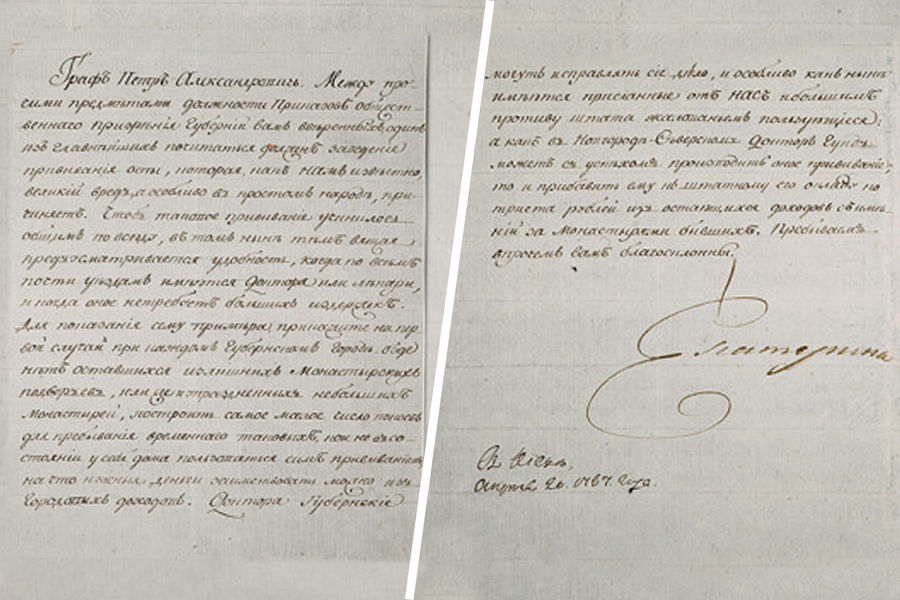 Графъ Петръ Александровичь. Между про-
сими предмѣтами должности Приказовъ общест-
веннаго призрѣнія Губерній вамъ ввѣренныхъ, одинъ
изъ главнѣйшихъ почитаться заведеніе
прививанія оспы, которая, какъ намъ извѣстно,
великій вредъ, а особливо въ простомъ народѣ, при-
чиняетъ. Чтобъ таковое прививаніе учинилось
общимъ повсюду, въ томъ нынѣ тѣмъ вящая
предъусматривается удобность, когда по всѣмъ
почти уѣздамъ имѣются Доктора или лѣкари,
и когда оное нетребуетъ большихъ издержекъ.
Для показанія сему примѣра, прикажите на пер-
вой случай при каждомъ Губернскомъ Городѣ, обде
нибъ оставшихся излишнихъ Монастырскихъ
подворьевъ, или це изтраздненныхъ небольшихъ
Монастырей, построить самое малое число покоевъ
для пребыванія временнаго таковыхъ, кои не въ со-
стояніи у себя дома пользоваться симъ прививаніемъ
на что и деньги заимствовать можно изъ
Городскихъ доходовъ. Доктора Губернскіе
могутъ исправлять сіе дѣло, и особливо какъ нынѣ
имѣются присланные отъ НАСЪ и большимъ
противу штата жалованьемъ пользующіеся;
а какъ въ Новгородѣ-Сѣверскомъ Докторъ Гунъ
можетъ съ успѣхомъ производить оное прививаніе;
то и прибавить ему къ штатному его окладу по
триста рублей изъ остающихся доходовъ съ имѣ-
ній за Монастырями бывшихъ. Пребываемъ
впрочемъ вамъ благосклонны.
Екатерина
Въ Кіевѣ,
Апрѣля 20. 1787. года.